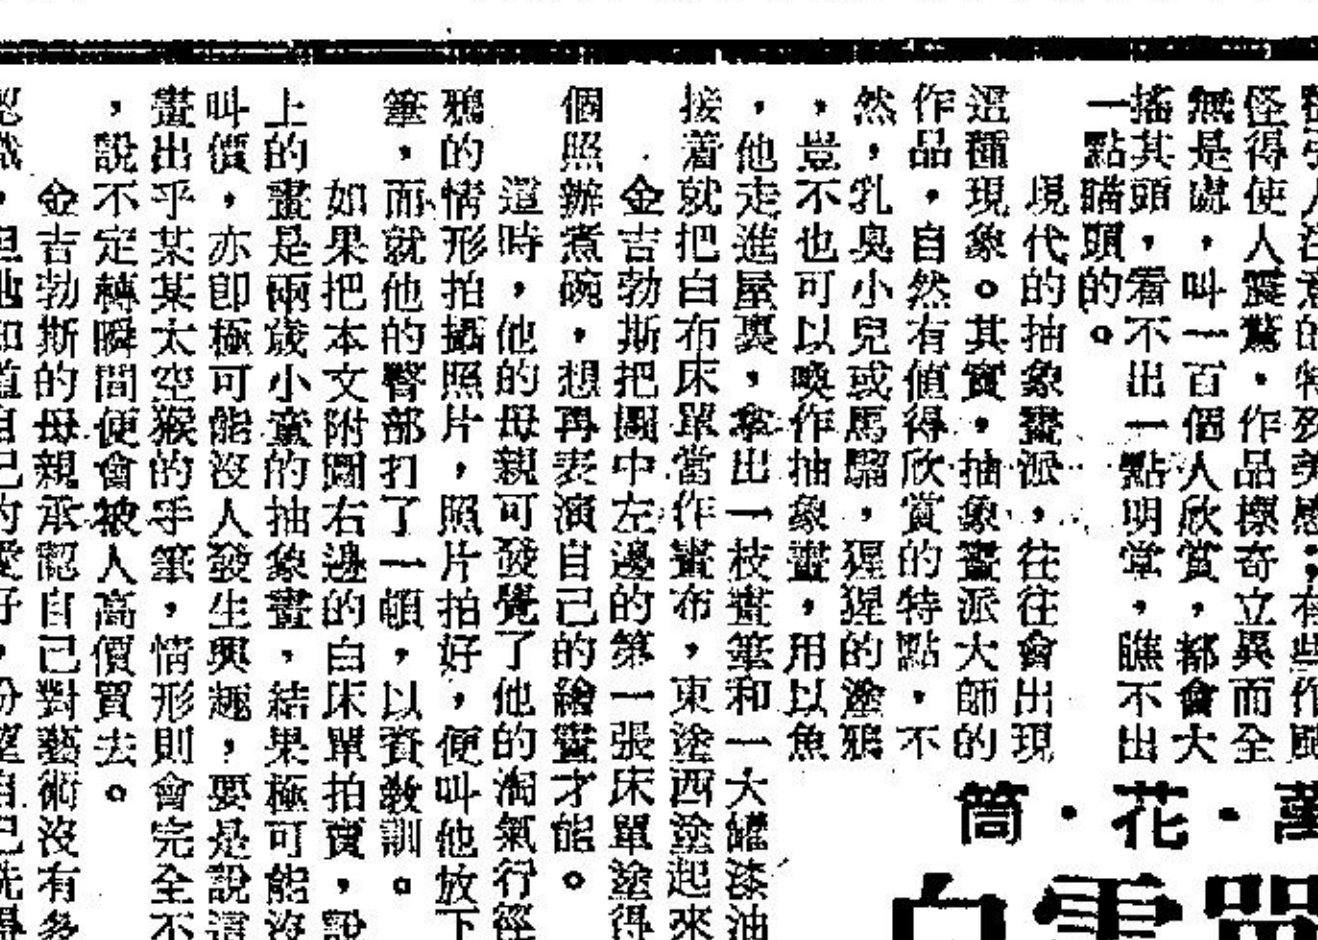 引人注意的特殊美感；有些作
怪得使人震驚。作品標奇立異而全
無是處，叫一百個人欣賞，都會大
搖其頭，看不出一點明堂，瞧不出
一點瞄頭的。
現代的抽象畫派，往往會出現
這種現象。其實，抽象畫派大師的
作品，自然有值得欣賞的特點，不
然，乳臭小兒或馬騮，猩猩的塗鴉
，豈不也可以喚作抽象畫，用以魚
，他走進屋裏，拿出一枝畫筆和一大罐漆油
接着就把白布床單當作畫布，東塗西塗起來
金吉勃斯把圖中左邊的第一張床單塗得
個照辦煮碗，想再表演自己的繪畫才能。
這時，他的母親可發覺了他的淘氣行徑
鴉的情形拍攝照片，照片拍好，便叫他放下
筆，而就他的臀部打了一頓，以資教訓。
如果把本文附圖右邊的白床單拍賣，說
上的畫是兩歲小童的抽象畫，結果極可能沒
叫價，亦即極可能沒人發生興趣，要是說這
畫出乎某某太空猴的手筆，情形則會完全不
，說不定轉瞬間便會被人高價買去。
金吉勃斯的母親承認自己對藝術沒有多
認識，但她知道自己的愛好，盼望自己洗得
萬·花·筒